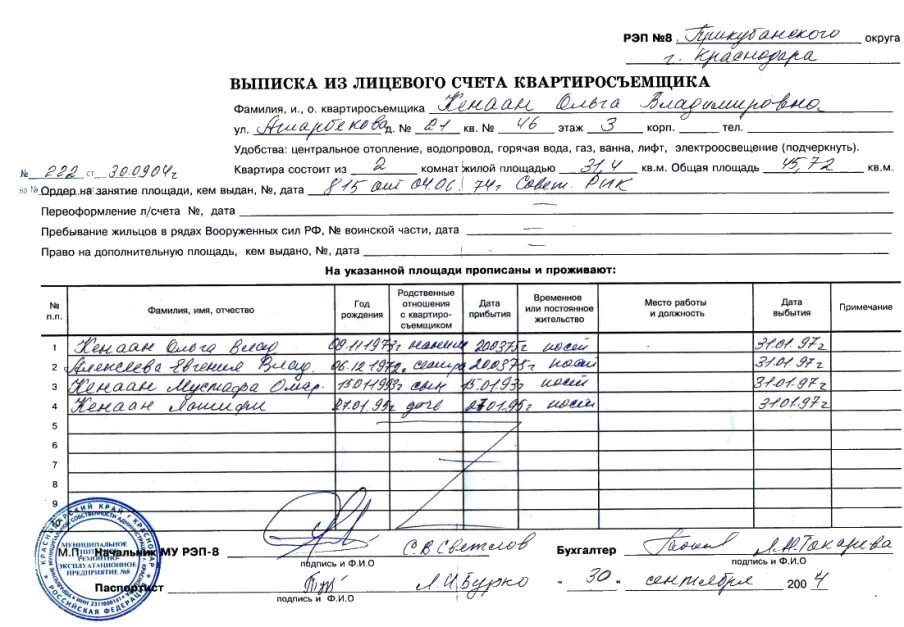 РЭП №8 Прикубанского округа
г. Краснодара
ВЫПИСКА ИЗ ЛИЦЕВОГО СЧЕТА КВАРТИРОСЪЕМЩИКА
Фамилия, и., о. квартиросъемщика Кенаан Ольга Владимировна
ул. Атарбекова д. № 21 кв. № 46 этаж 3 корп. тел.
Удобства: центральное отопление, водопровод, горячая вода, газ, ванна, лифт, электроосвещение (подчеркнуть).
№ 222 от 30.09.04г
Квартира состоит из 2 комнат жилой площадью 31,4 кв.м. Общая площадь 45,72 кв.м.
на №
Ордер на занятие площади, кем выдан, №, дата 815 от 04.06.74г Совет. РИК
Переоформление л/счета №, дата —
Пребывание жильцов в рядах Вооруженных сил РФ, № воинской части, дата —
Право на дополнительную площадь, кем выдано, №, дата —
На указанной площади прописаны и проживают:
№ п.п. Фамилия, имя, отчество Год рождения Родственные отношения с квартиросъемщиком Дата прибытия Временное или постоянное жительство Место работы и должность Дата выбытия Примечание
1 Кенаан Ольга Влад 20.03.75 31.01.97г
2 Алексеева Евгения Влад. 06.12.197 сестра 20.03.75 31.01.97г
3 Кенаан Мустафа Омар. 15.01.1993г сын 15.01.93г 31.01.97г
4 Кенаан 27.01.95г дочь 27.01.95г 31.01.97г
5
6
7
8
9
10
М.П. Начальник МУ РЭП-8 С В Светлов Бухгалтер Л.М. Токарева
подпись и Ф.И.О подпись и Ф.И.О
Паспортист Л.И Бурко " 30 " сентября 200 4
подпись и Ф.И.О
КРАСНОДАРСКИЙ КРАЙ Г КРАСНОДАР
МУНИЦИПАЛЬНОЕ
УНИТАРНОЕ
РЕМОНТНО-
ЭКСПЛУАТАЦИОННОЕ
ПРЕДПРИЯТИЕ №8
РОССИЙСКАЯ ФЕДЕРАЦИЯ